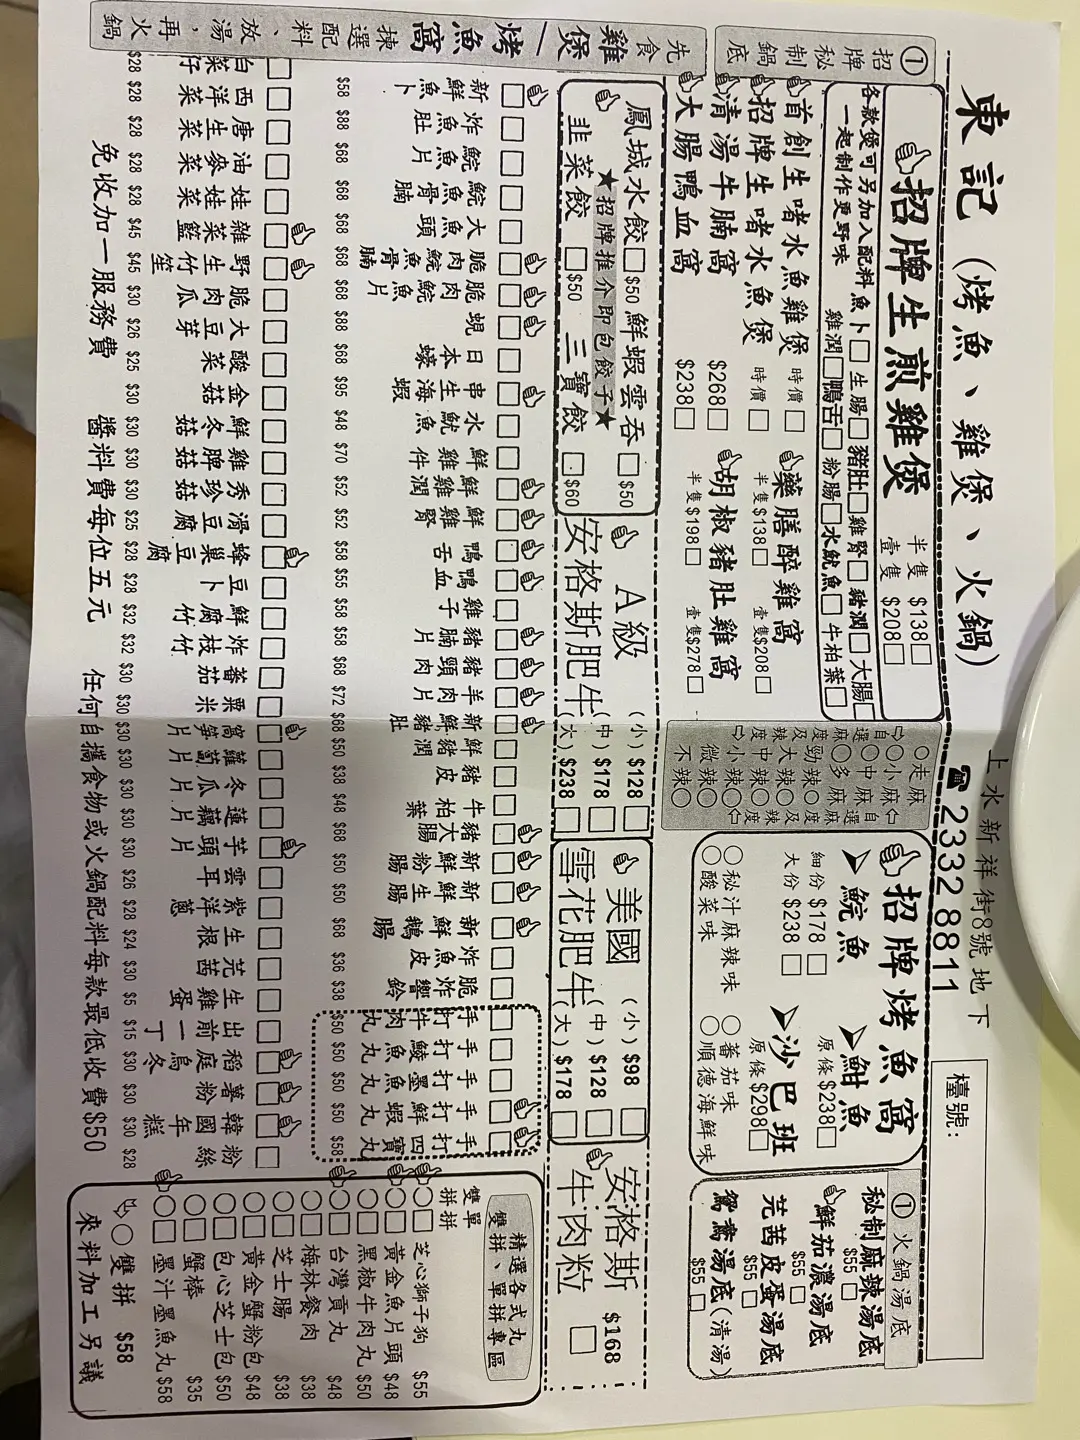 東記（烤魚、雞煲、火鍋）
上水新祥街8號地下
☎ 2332 8811
檯號：
① 招牌秘制鍋底
招牌生煎雞煲
半隻 $138□
壹隻 $208□
各款煲可另加入配料一起制作更野味
魚卜□ 生腸□ 豬肚□ 雞腎□ 豬潤□ 大腸□
雞潤□ 鴨舌□ 粉腸□ 水魷魚□ 牛柏葉□
首創生啫水魚雞煲 時價 □
招牌生啫水魚煲 時價 □
清湯牛腩窩 $268□
大腸鴨血窩 $238□
藥膳醉雞窩
半隻$138□ 壹隻$208□
胡椒豬肚雞窩
半隻$198□ 壹隻$278□
自選麻度及辣度
○走麻 ○小麻 ○中麻 ○多麻
○勁辣 ○大辣 ○中辣 ○小辣 ○微辣 ○不辣
招牌烤魚窩
➤鯇魚
細份 $178 □
大份 $238 □
➤鮒魚
原條 $238□
➤沙巴班
原條 $298□
○秘汁麻辣味 ○蕃茄味
○酸菜味 ○順德海鮮味
① 火鍋湯底
秘制麻辣湯底 $55 □
鮮茄濃湯底 $55 □
芫茜皮蛋湯底 $55 □
鴛鴦湯底(清湯) $55 □
雞煲/烤魚窩
先食揀選配料、放湯，再火鍋
鳳城水餃□$50 鮮蝦雲吞□$50
★招牌推介即包餃子★
韭菜餃 □$50 三寶餃 □$60
A級安格斯肥牛
(小) $128 □
(中) $178 □
(大) $238 □
美國雪花肥牛
(小) $98 □
(中) $128 □
(大) $178 □
安格斯牛肉粒 $168 □
新鮮魚卜 $58
炸魚肚 $88
鯇魚片 $68
鯇魚骨腩 $68
大魚頭 $68
脆肉鯇骨腩 $68
脆肉鯇魚片 $68
蜆 $88
日本蠔 $68
串生海蝦 $95
水魷魚 $48
鮮雞件 $70
鮮雞潤 $52
鮮雞腎 $52
鴨舌 $58
鴨血 $55
雞子 $58
豬腩片 $58
豬頸肉 $68
羊肉片 $72
新鮮豬肚 $68
鮮豬潤 $50
豬皮 $38
牛柏葉 $48
豬大腸 $68
新鮮粉腸 $50
新鮮生腸 $50
新鮮鵝腸 $68
炸魚皮 $36
脆炸響鈴 $38
手打牛肉丸 $50
手打鯪魚丸 $50
手打墨魚丸 $50
手打鮮蝦丸 $50
手打四寶丸 $58
白菜仔 $28
西洋菜 $28
唐生菜 $28
油麥菜 $28
娃娃菜 $28
雜菜籃 $45
野生竹笙 $45
脆肉瓜 $30
大豆芽 $26
酸菜 $25
金菇 $30
鮮冬菇 $30
雞脾菇 $30
秀珍菇 $30
滑豆腐 $25
蜂巢豆腐 $28
豆卜 $28
鮮腐竹 $32
炸枝竹 $32
蕃茄 $30
粟米 $30
窩筍片 $30
蘿蔔片 $30
冬瓜片 $30
蓮藕片 $30
芋頭 $30
雲耳 $26
紫洋蔥 $28
生根 $24
芫茜 $30
生雞蛋 $5
出前一丁 $15
稻庭烏冬 $30
薯粉 $30
韓國年糕 $30
粉絲 $28
精選各式丸
雙拼、單拼專區
雙拼 單拼
○□芝心獅子狗 $55
○□黃金魚片頭 $48
○□黑椒牛肉丸 $50
○□台灣貢丸 $48
○□梅林餐肉 $38
○□芝士腸 $38
○□黃金蟹粉包 $48
○□包心芝士包 $50
○□蟹棒 $35
○□墨汁墨魚丸 $58
○雙拼 $58
來料加工另議
免收加一服務費 醬料費每位五元 任何自攜食物或火鍋配料每款最低收費$50